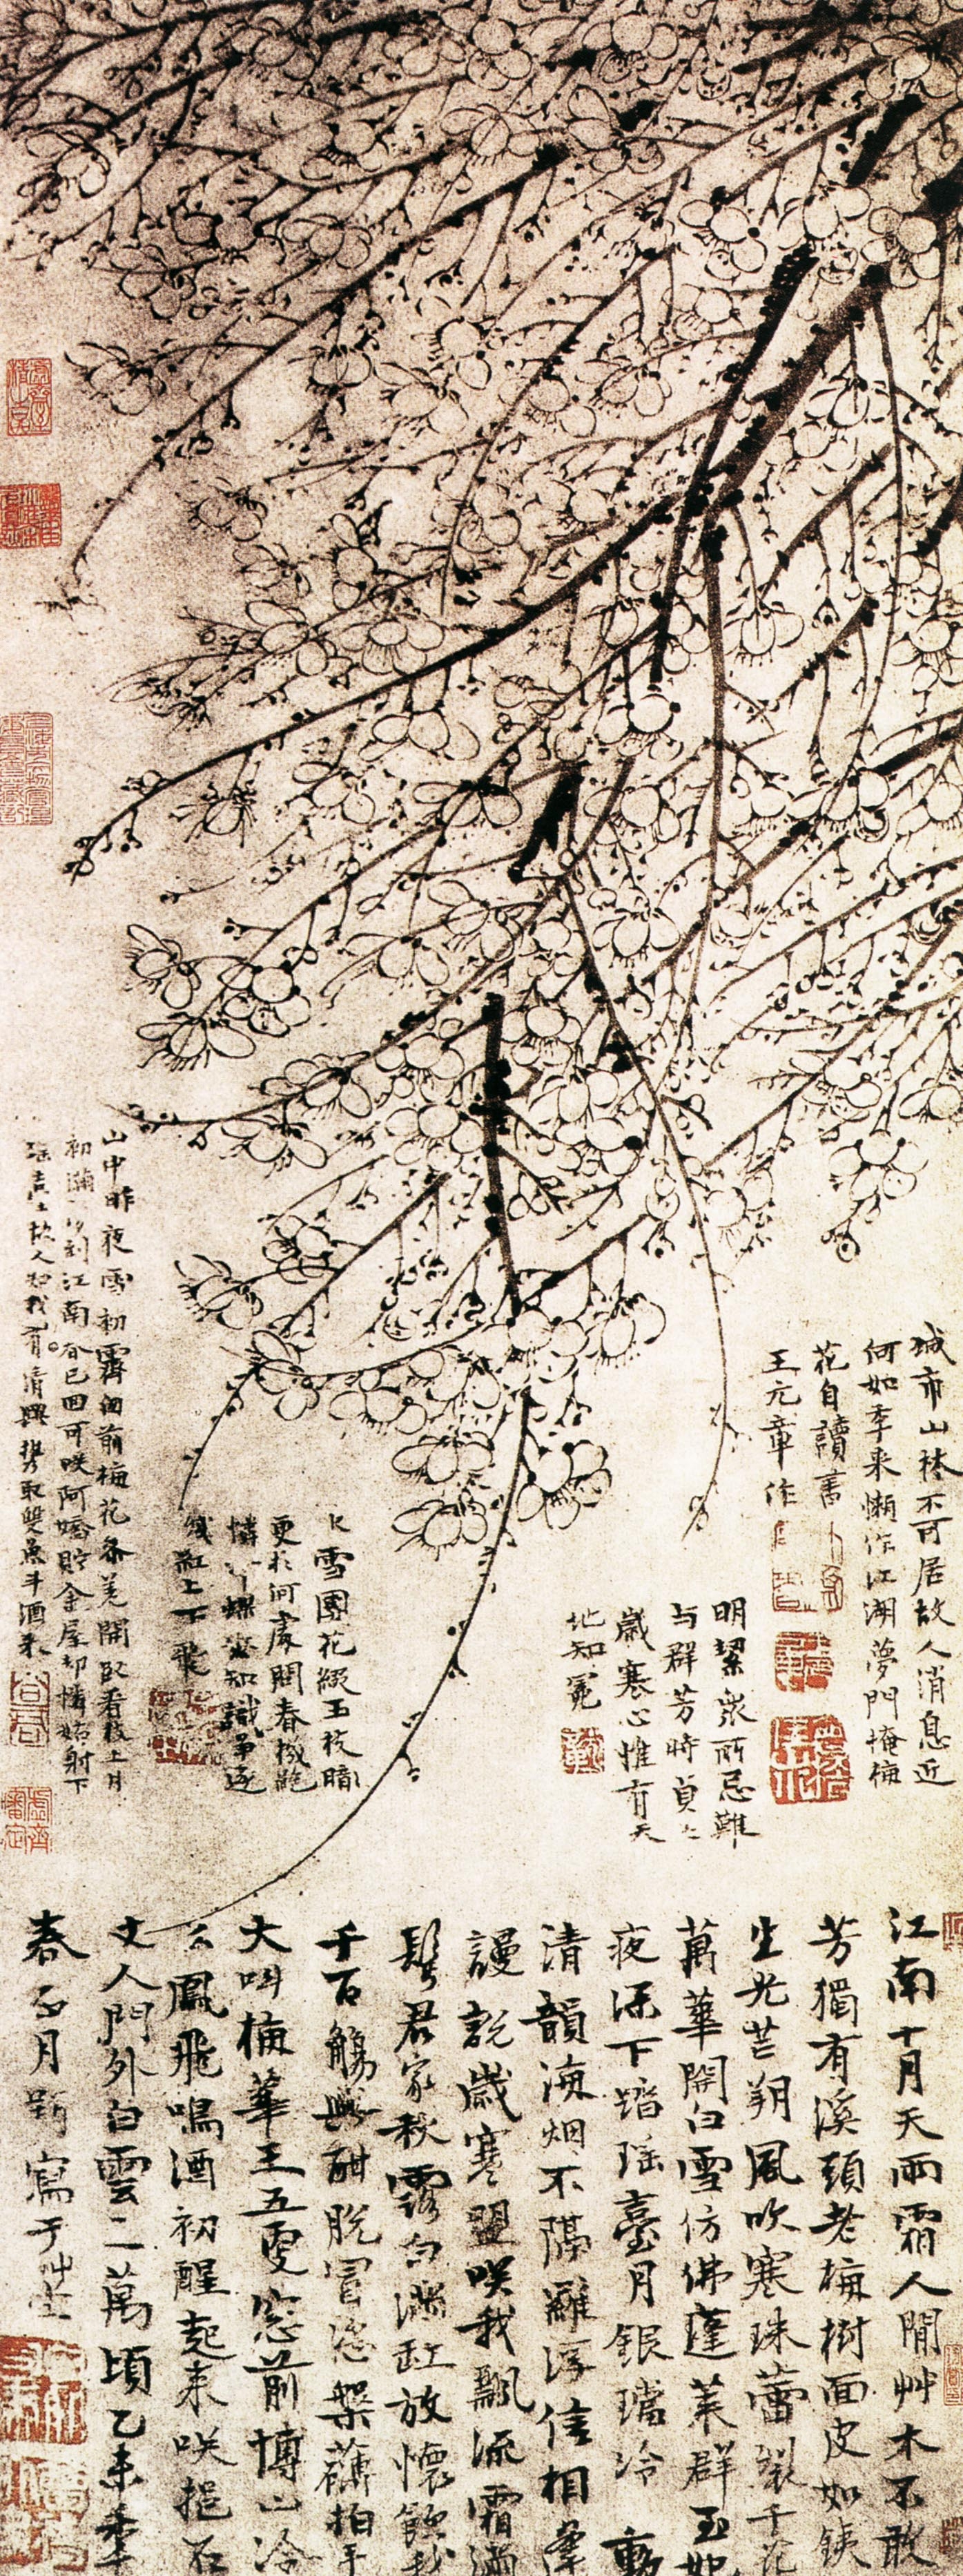 城市山林不可居故人消息近
何如年来懶作江湖夢門掩梅
花自讀書
王元章作
明潔衆所忌難
与群芳時貞々
歲寒心惟有天
地知冕
雪團花綴玉枝暗
更於何處問春機絕
憐蜂蝶知識爭逐
殘紅上下飛
山中昨夜雪初霽窗前梅花參差開臥看枝上月
初滿到江南春已回可咲阿嬌貯金屋却憐姑射下
瑶臺故人知我有清興携取雙魚斗酒来
江南十月天雨霜人間艸木不敢
芳獨有溪頭老梅樹面皮如鐵
生光芒朔風吹寒珠蕾裂千花
萬華開白雪仿佛蓬莱群玉妃
夜深下踏瑶臺月銀璫冷動
清韻海烟不隔羅浮信相逢
謾説歲寒盟咲我飄流霜滿
鬢君家秋露白滿缸放懷飲我
千百觴興酣脱冒恣槃礴拍手
大叫梅華王五更窓前博山冷
么鳳飛鳴酒初醒起来咲挹石
丈人門外白雲二萬頃乙未年
春正月題寫于艸堂